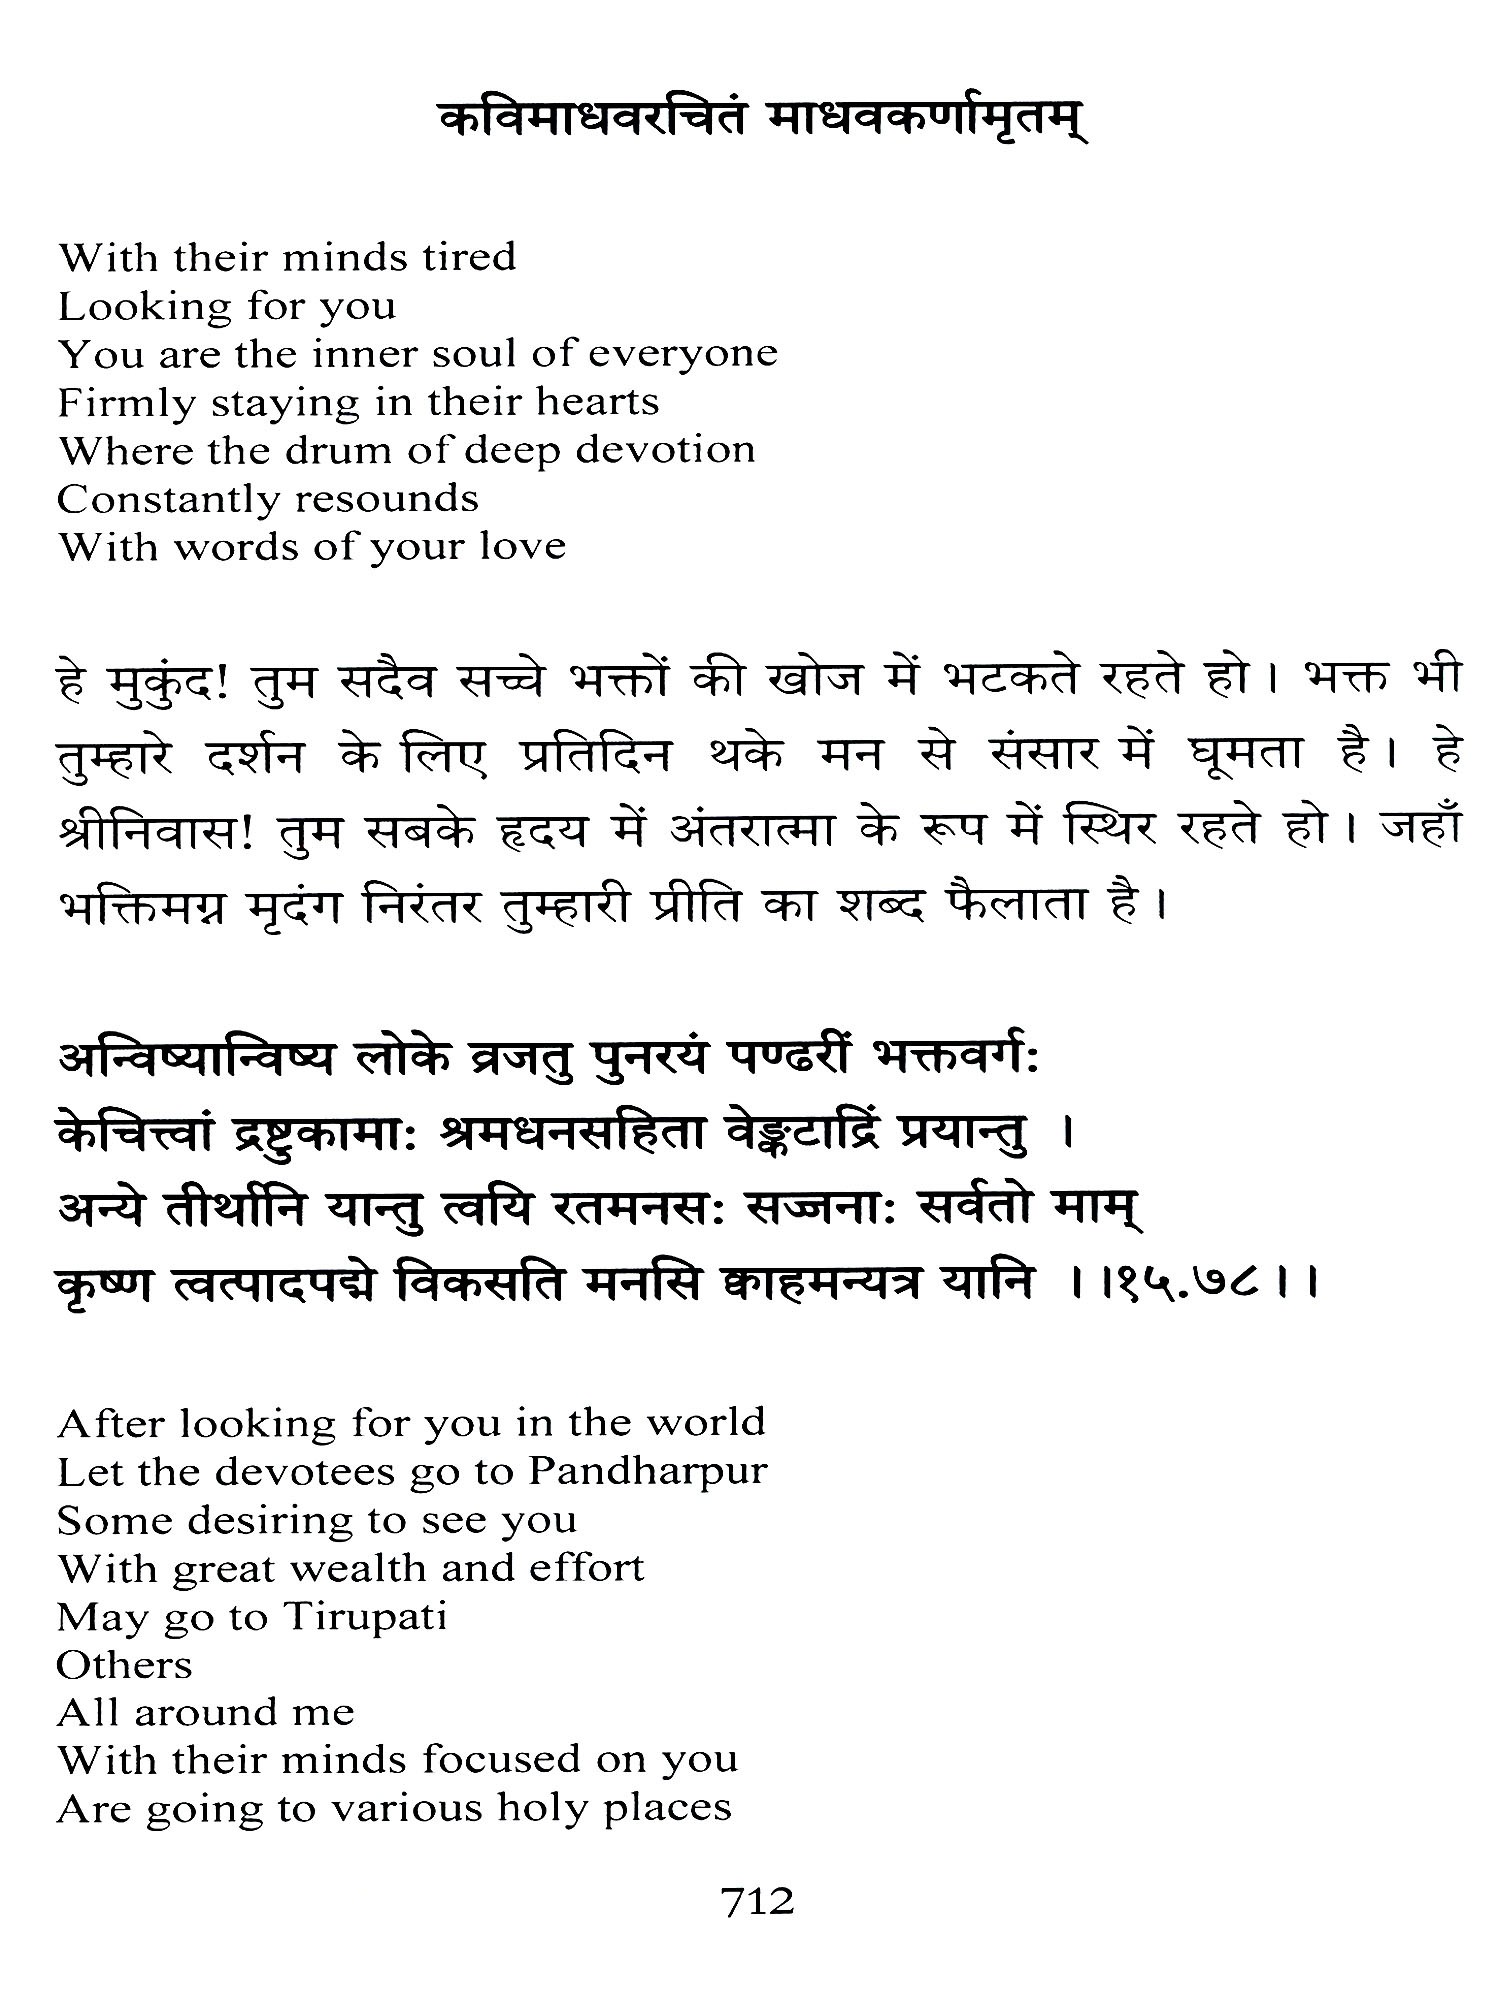 कविमाधवरचितं माधवकर्णामृतम्
With their minds tired
Looking for you
You are the inner soul of everyone
Firmly staying in their hearts
Where the drum of deep devotion
Constantly resounds
With words of your love
हे मुकुंद! तुम सदैव सच्चे भक्तों की खोज में भटकते रहते हो। भक्त भी
तुम्हारे दर्शन के लिए प्रतिदिन थके मन से संसार में घूमता है। हे
श्रीनिवास! तुम सबके हृदय में अंतरात्मा के रूप में स्थिर रहते हो। जहाँ
भक्तिमग्न मृदंग निरंतर तुम्हारी प्रीति का शब्द फैलाता है।
अन्विष्यान्विष्य लोके व्रजतु पुनरयं पण्ढरीं भक्तवर्गः
केचित्त्वां द्रष्टुकामाः श्रमधनसहिता वेङ्कटाद्रिं प्रयान्तु ।
अन्ये तीर्थानि यान्तु त्वयि रतमनसः सज्जनाः सर्वतो माम्
कृष्ण त्वत्पादपद्मे विकसति मनसि क्वाहमन्यत्र यानि ।।१५.७८।।
After looking for you in the world
Let the devotees go to Pandharpur
Some desiring to see you
With great wealth and effort
May go to Tirupati
Others
All around me
With their minds focused on you
Are going to various holy places
712